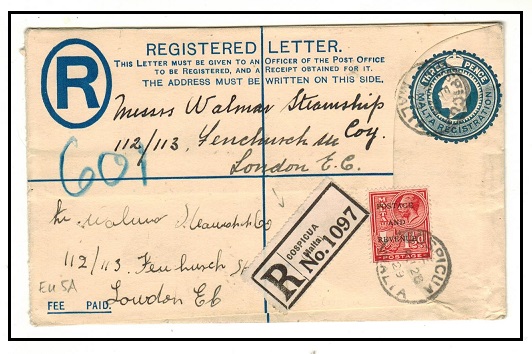 REGISTERED LETTER.
THIS LETTER MUST BE GIVEN TO AN OFFICER OF THE POST OFFICE
TO BE REGISTERED, AND A RECEIPT OBTAINED FOR IT.
THE ADDRESS MUST BE WRITTEN ON THIS SIDE.
R
THREE PENCE
MALTA REGISTRATION
Messrs Walmar Steamship
Coy.
112/113, Fenchurch
London E.C.
601
COSPICUA
(Malta)
R No. 1097
POSTAGE
AND
REVENUE
POSTAGE
COSPICUA
MALTA
112/113 Fenchurch St
London
EU 5A
FEE PAID.